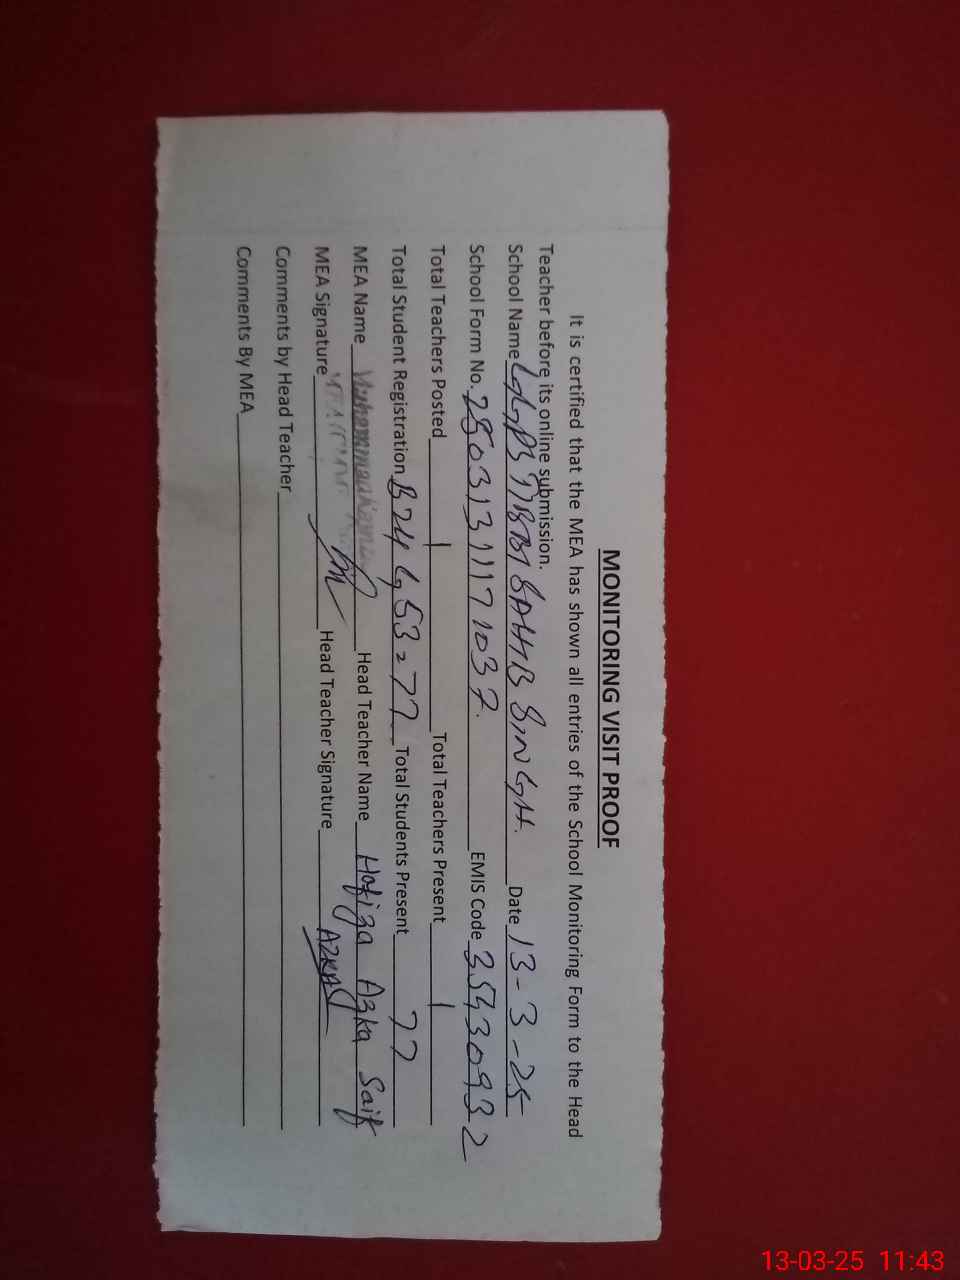 MONITORING VISIT PROOF
It is certified that the MEA has shown all entries of the School Monitoring Form to the Head
Teacher before its online submission.
School Name GGPS BIBI SAHIB SINGH. Date 13-3-25
School Form No. 28031311171037. EMIS Code 35430932
Total Teachers Posted 1 Total Teachers Present 1
Total Student Registration B24 G53=77 Total Students Present 77
MEA Name Muhammad Head Teacher Name Hafiza Azka Saif
MEA Signature Head Teacher Signature AZKAS
Comments by Head Teacher
Comments By MEA
13-03-25 11:43